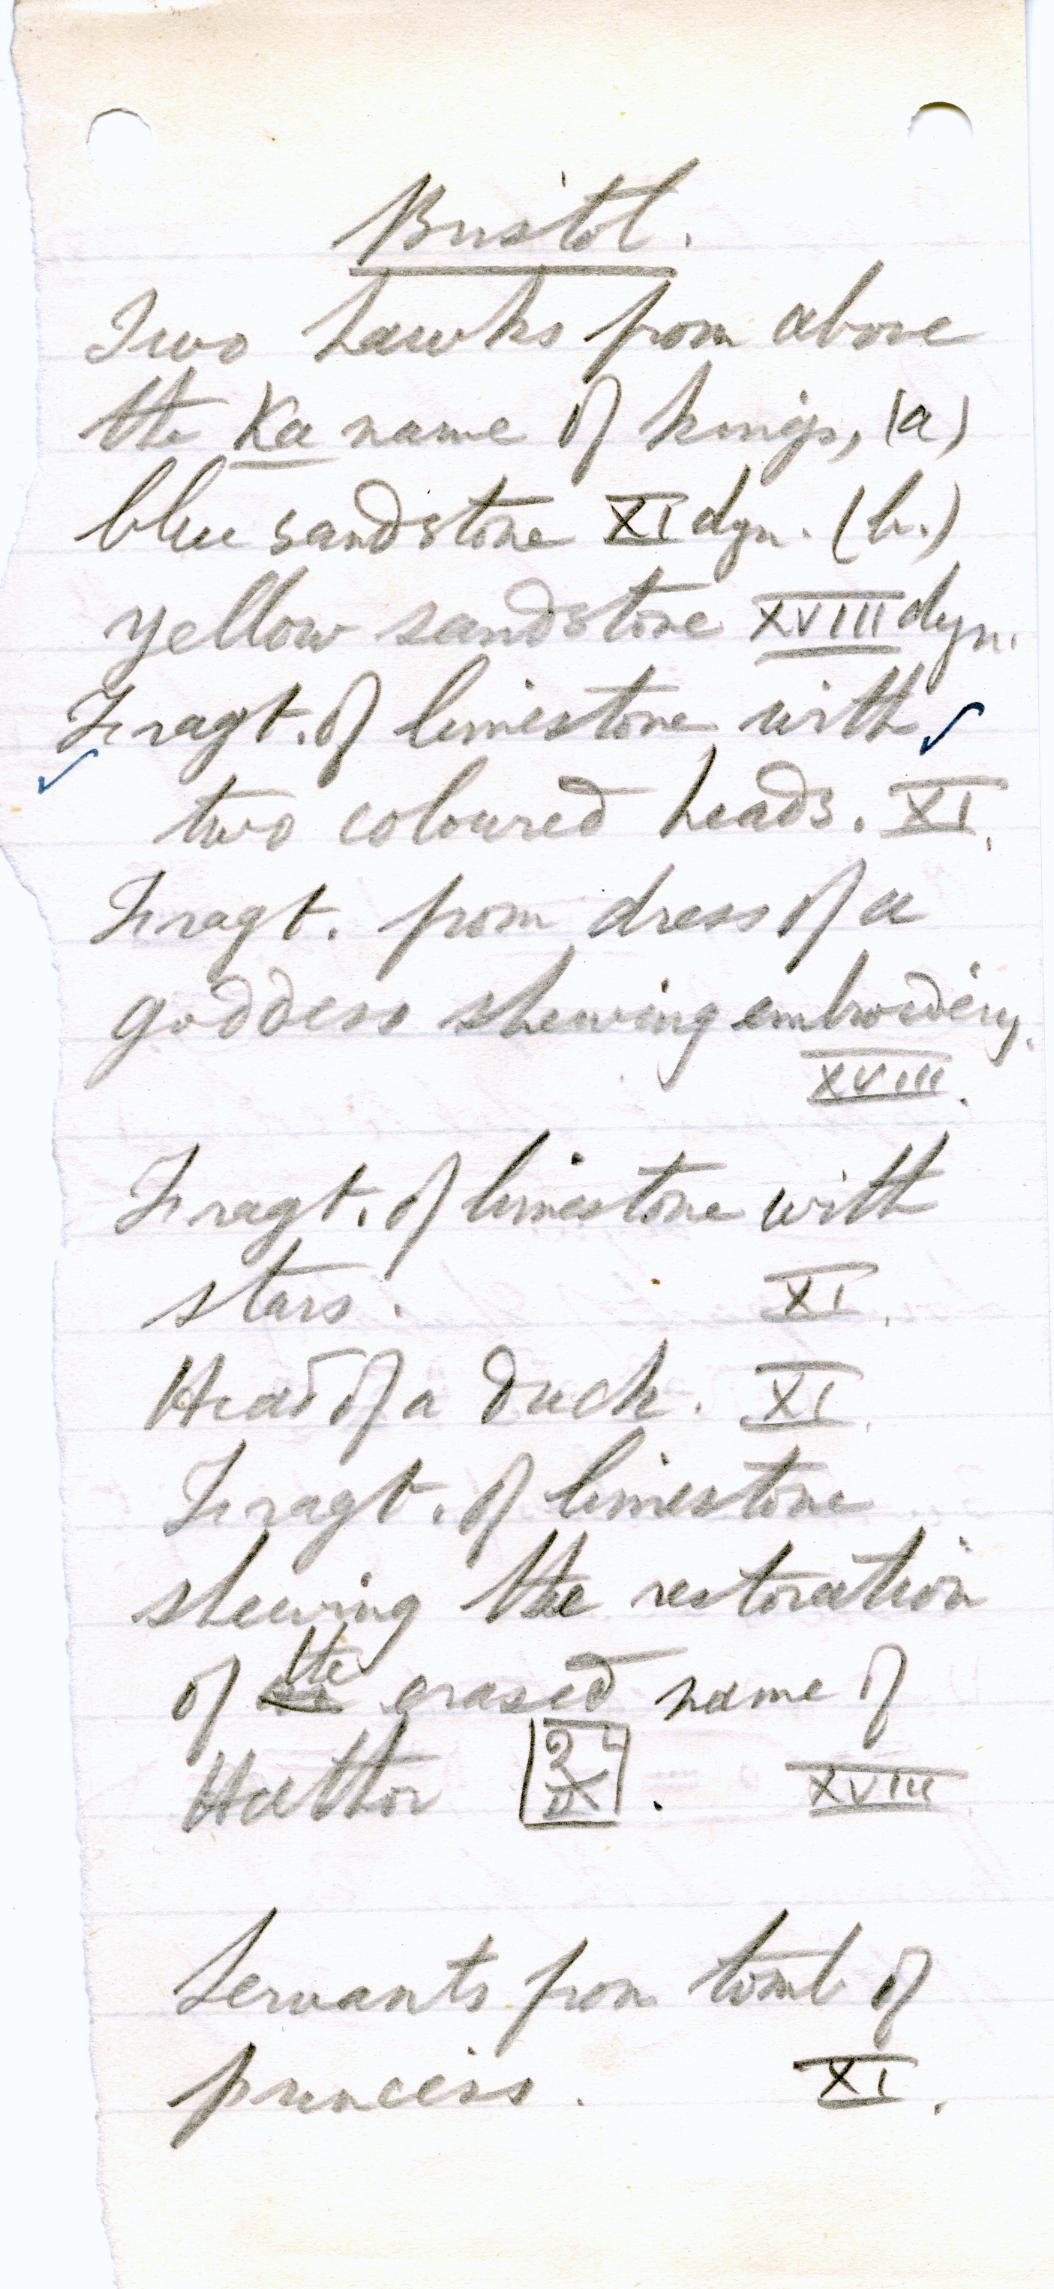 Bristol.
Two hawks from above
the Ka name of kings, (a)
blue sandstone XI dyn. (b.)
yellow sandstone XVIII dyn.
Fragt. of limestone with ✓
✓
two coloured heads. XI.
Fragt. from dress of a
goddess shewing embroidery.
XVIII.
Fragt. of limestone with
stars. XI.
Head of a duck. XI.
Fragt. of limestone
shewing the restoration
of the erased name of
Hathor . XVIII
Servants from tomb of
princess. XI.